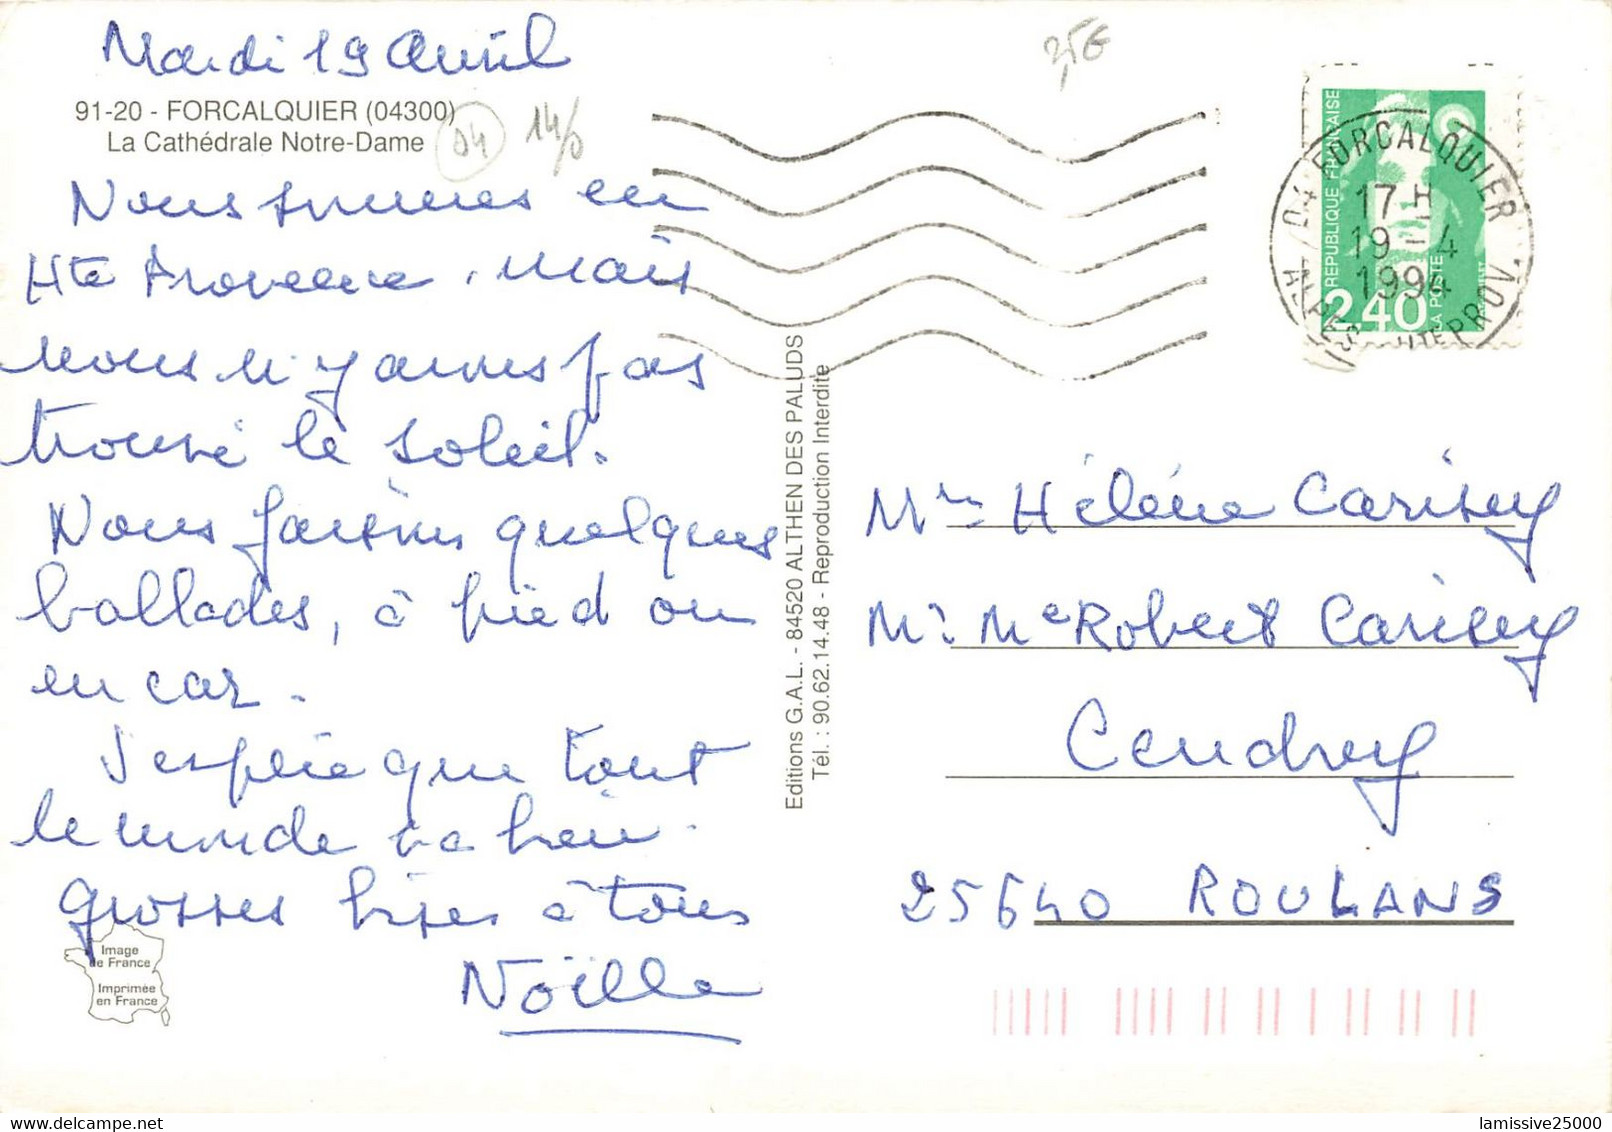 Mardi 19 Avril
91-20 - FORCALQUIER (04300)
La Cathédrale Notre-Dame
04
Nous sommes en
Hte Provence, mais
nous n'y avons pas
trouvé le soleil.
Nous faisons quelques
ballades, à pied ou
en car.
J'espère que tout
le monde va bien.
Grosses bises à tous
Noëlle
Image
de France
Imprimée
en France
Editions G.A.L. - 84520 ALTHEN DES PALUDS
Tél. : 90.62.14.48 - Reproduction Interdite
REPUBLIQUE FRANÇAISE
2,40
LA POSTE
04 FORCALQUIER
17 H
19 - 4
1994
Mme Hélène Carisey
Mr Me Robert Carisey
Cendrey
25640 ROULANS
lamissive25000